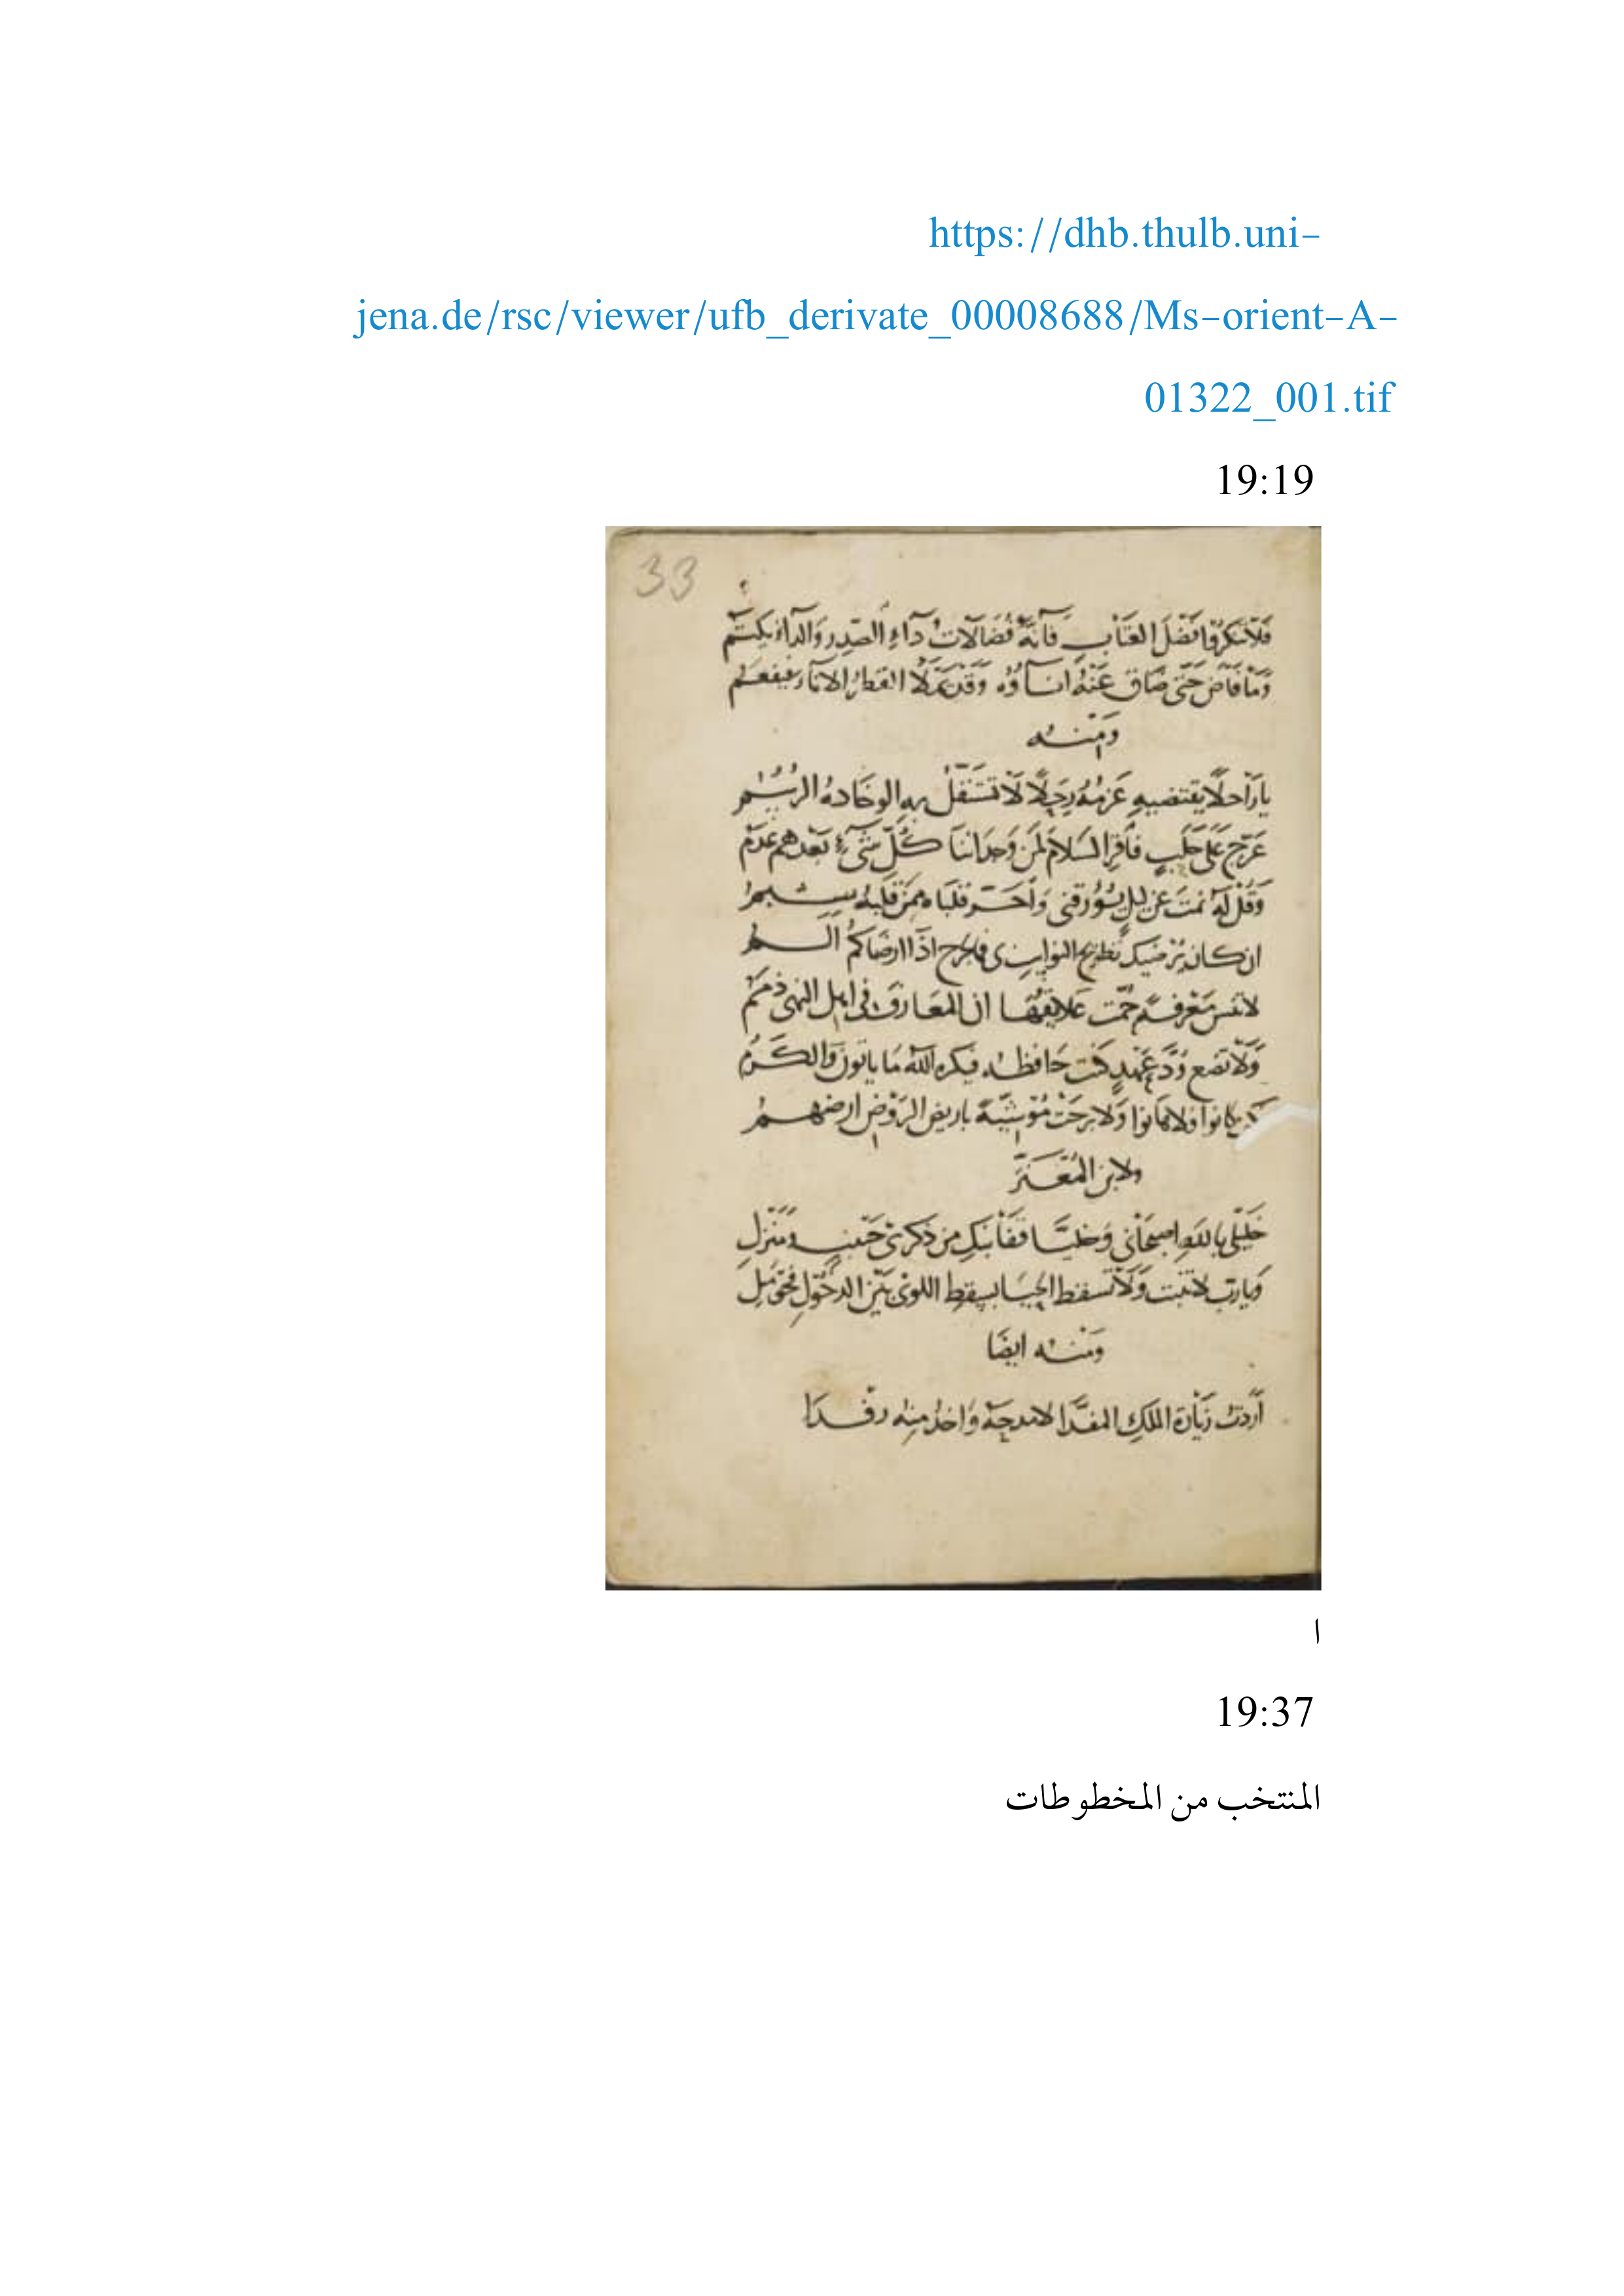 https://dhb.thulb.uni-
jena.de/rsc/viewer/ufb_derivate_00008688/Ms-orient-A-
01322_001.tif
19:19
33
فلا تنكروا فضل العتاب فانه فضالات داء الصدر والداء يكتم
وما فاض حتى ضاق عنه اناؤه وقد يملا القطر الاناء فيفعم
ومنه
يا راحلا يقتضيه عزمه رجلا لا تستقل به الوخادة الرسم
عرج على حلب فاقر السلام لمن وجداننا كل شيء بعدهم عدم
وقل له نمت عن ليل يؤرقني واحر قلباه ممن قلبه شبم
ان كان يرضيك فما لجرح اذا ارضاكم الم
لا تنس معرفة علايقها ان المعارف في اهل النهى ذمم
ولا تضع ود عهد كنت حافظه فيكره الله ما ياتون والكرم
كانوا ولا برحت موشية باريض الروض ارضهم
ولابن المعتز
خليلي بالله اصبحاني وخليا قفا نبك من ذكرى حبيب ومنزل
ويا رب لا تنبت ولا تسقط الحيا بسقط اللوى بين الدخول فحومل
ومنه ايضا
اردت زيارة الملك المفدا لامدحه واخذ منه رفدا
ا
19:37
المنتخب من المخطوطات